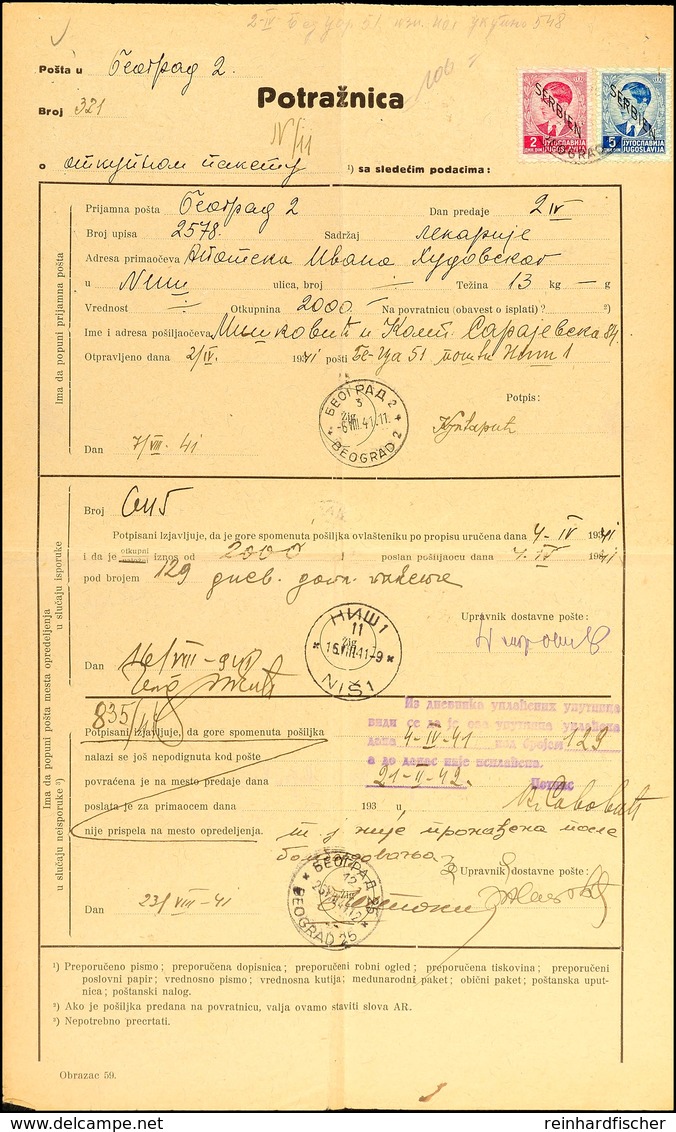 2-IV
548
Pošta u Београд 2.
Broj 321
Potražnica
IV/11
SERBIEN SERBIEN
2 ЈУГОСЛАВИЈА JUGOSLAVIJA
5 ЈУГОСЛАВИЈА JUGOSLAVIJA
o откупном пакету ¹) sa sledećim podacima:
Ima da popuni prijamna pošta
Prijamna pošta Београд 2 Dan predaje 2 IV
Broj upisa 2578. Sadržaj лекарије
Adresa primaočeva Апотека Ивана Худовског
u Ниш ulica, broj ÷ Težina 13 kg — g
Vrednost ÷ Otkupnina 2000.— Na povratnicu (obavest o isplati)? ²)
Ime i adresa pošiljaočeva Мишковић и Комп. Сарајевска 84.
Otpravljeno dana 2/IV. 1941 pošti Бе-Ца 51 пошти Ниш 1
Potpis:
БЕОГРАД 2
3
Žig
-6.VIII.41.11.
BEOGRAD 2
Dan 7/VIII. 41
Ima da popuni pošta mesta opredeljenja
u slučaju isporuke
Broj
Potpisani izjavljuje, da je gore spomenuta pošiljka ovlašteniku po propisu uručena dana 4-IV 1941
i da je otkupni iznos od 2000 poslan pošiljaocu dana 4.IV 1941
pod brojem 129 днев. дот. пакета
Upravnik dostavne pošte:
НИШ 1
11
Žig
16.VIII.41-9
NIŠ 1
Dan 16/VIII-941
835/41
u slučaju neisporuke ³)
Potpisani izjavljuje, da gore spomenuta pošiljka
nalazi se još nepodignuta kod pošte
povraćena je na mesto predaje dana
poslata je za primaocem dana 193 u
nije prispela na mesto opredeljenja.
Из дневника уплаћених упутница
види се да је ова упутница уплаћена
дана 4-IV-41 под бројем 129
а до данас није исплаћена.
21-II-42. Потпис
т.ј није пронађена после
бомбардовања
Upravnik dostavne pošte:
БЕОГРАД 25
12
BEOGRAD 25
Dan 23/VIII-41
¹) Preporučeno pismo; preporučena dopisnica; preporučeni robni ogled; preporučena tiskovina; preporučeni
poslovni papir; vrednosno pismo; vrednosna kutija; međunarodni paket; obični paket; poštanska uput-
nica; poštanski nalog.
²) Ako je pošiljka predana na povratnicu, valja ovamo staviti slova AR.
³) Nepotrebno precrtati.
Obrazac 59.
reinhardfischer